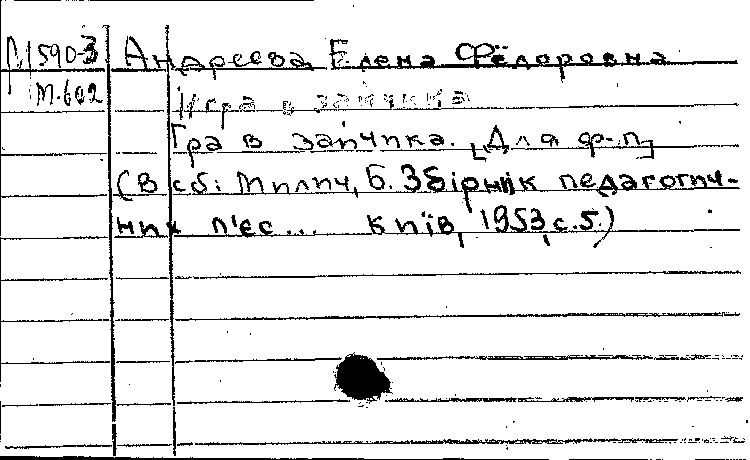 М590-3 Андреева Елена Фёдоровна
М-602 Игра в зайчика
Гра в зайчика. [Для ф-п]
(В сб: Милич, Б. Збірник педагогич-
них п'єс... Київ, 1953, с.5.)